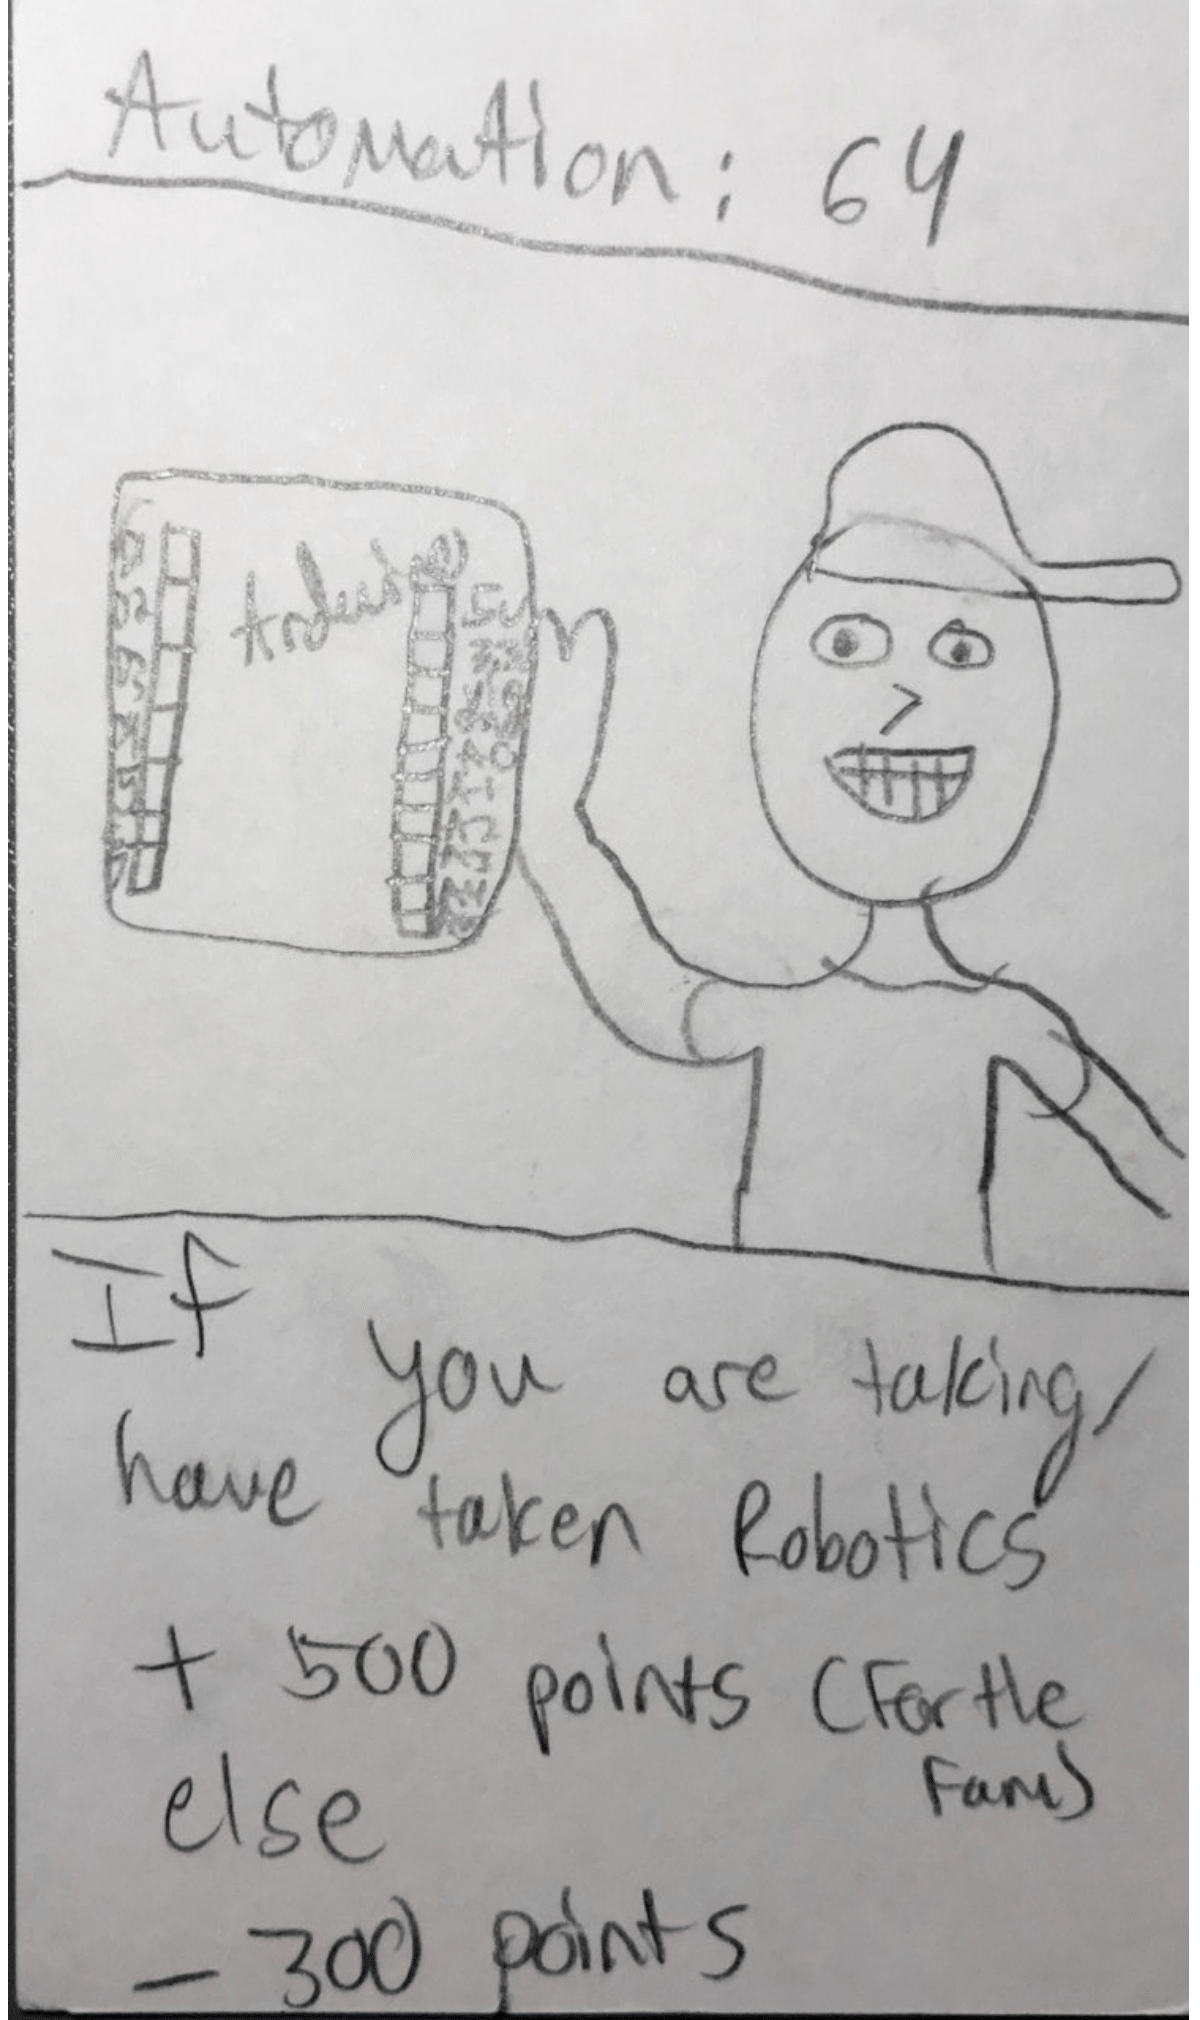 Automation: 64
Arduino
5V
If you are taking/
have taken Robotics
+ 500 points (For the
Fam)
else
- 300 points